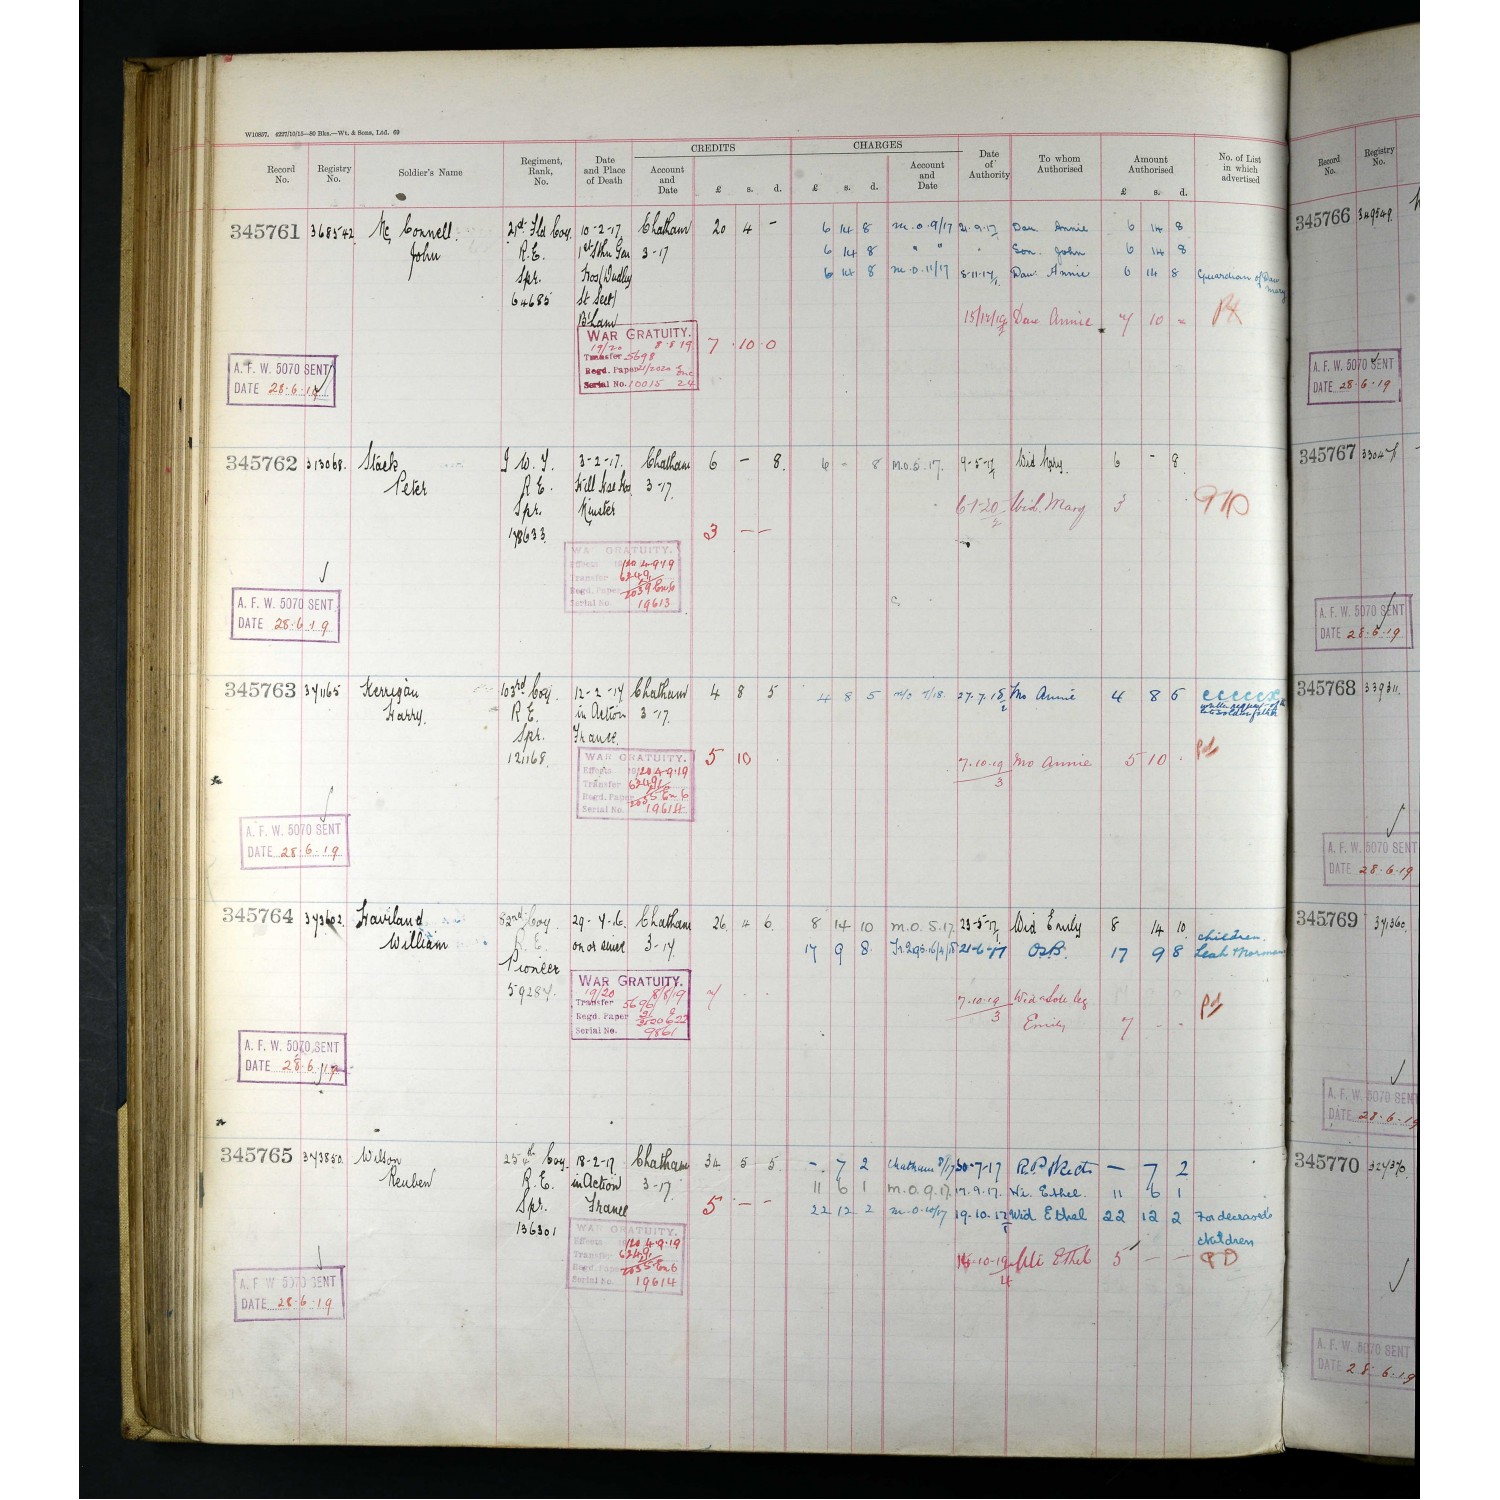 W10857. 4227/10/15—80 Bks.—Wt. & Sons, Ltd. 69
CREDITS CHARGES
Record No. Registry No. Soldier's Name Regiment, Rank, No. Date and Place of Death Account and Date £ s. d. £ s. d. Account and Date Date of Authority To whom Authorised Amount Authorised £ s. d. No. of List in which advertised Record No. Registry No.
345761 368542 Mc Connell. 21st Fld Coy. 10-2-17. Chatham 20 4 - 6 14 8 m.o.9/17 21.9.17 Dau Annie 6 14 8
John R.E. 3-17 6 14 8 " " Son John 6 14 8
Spr. Hos/Dudley 6 14 8 m.o.11/17 8-11-17 Dau. Annie 6 14 8 Guardian of Dau Mary
64685
B'ham 15/12/19 Dau Annie 7 10 -
WAR GRATUITY. 7 10 0
19/20 8.8.19
Transfer 5698
Regd. Paper
Serial No. 10015 24
A. F. W. 5070 SENT
DATE 28.6.19
345762 313068. Stack I.W.T. 3-2-17. Chatham 6 - 8. 6 - 8 m.o.5.17. 9-5-17 Wid Mary. 6 - 8
Peter R.E. 3-17.
Spr. Minster 6-1-20 Wid. Mary 3
178633 3 - -
WAR GRATUITY.
Effects 4.9.19
Transfer
Regd. Paper
Serial No. 19613
A. F. W. 5070 SENT
DATE 28.6.19
345763 371165 Kerrigan 103rd Coy. 12-2-17 Chatham 4 8 5 4 8 5 m/o 7/18. 27.7.18 Mo Annie 4 8 5
Harry. R.E. in Action 3-17.
Spr. France.
121168. 5 10 7.10.19 Mo Annie 5 10
3
WAR GRATUITY.
Effects 4.9.19
Transfer
Regd. Paper
Serial No. 19614
A. F. W. 5070 SENT
DATE 28.6.19
345764 373602. Haviland 82nd Coy 29-7-16. Chatham 26. 4 6. 8 14 10 m.o.5.17. 23-5-17 Wid Emily 8 14 10
William R.E. on or since 3-17 17 9 8. 21-6-17 17 9 8 children Leah & Norman
Pioneer
59287. 7 7.10.19 Wid
3 Emily 7 - -
WAR GRATUITY.
19/20 8/8/19
Transfer 5696
Regd. Paper
Serial No. 9861
A. F. W. 5070 SENT
DATE 28.6.19
345765 373850. Wilson 254th Coy. 18-2-17 Chatham 34. 5 5. - 7 2 Chatham 30-7-17 - 7 2
Reuben R.E. in Action 3-17. 11 6 1 m.o.9.17. 17.9.17. Wi. Ethel. 11 6 1
Spr. France 5 - - 22 12 2 m.o.10/17 19.10.17 Wid Ethel 22 12 2 For deceased's
136301 children
10.19 Wi Ethel 5 - - PD
WAR GRATUITY.
Effects 4.9.19
Transfer
Regd. Paper
Serial No. 19614
A. F. W. 5070 SENT
DATE 28.6.19
345766 349549.
A. F. W. 5070 SENT
DATE 28.6.19
345767
A. F. W. 5070 SENT
DATE 28.6.19
345768 339311.
A. F. W. 5070 SENT
DATE 28.6.19
345769 371360.
A. F. W. 5070 SEN
DATE 28.6.19
345770 327370.
A. F. W. 5070 SENT
DATE 28.6.19